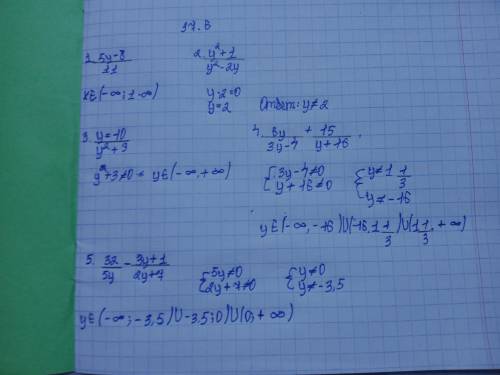 17.В
1. 5y-8 / 11
x∈(-∞; 1-∞)
2. y²+1 / y²-2y
y-2=0
y=2
Ответ: y≠2
3. y=10 / y²+3
y²+3≠0 = y∈(-∞,+∞)
4. 8y / 3y-4 + 15 / y+16.
{ 3y-4≠0
y+16≠0
{ y≠1 1/3
y≠-16
y∈(-∞,-16)∪(-16, 1 1/3)∪(1 1/3, +∞)
5. 32 / 5y - 3y+1 / 2y+7
{ 5y≠0
2y+7≠0
{ y≠0
y≠-3,5
y∈(-∞; -3,5)∪-3,5;0)∪(0;+∞)